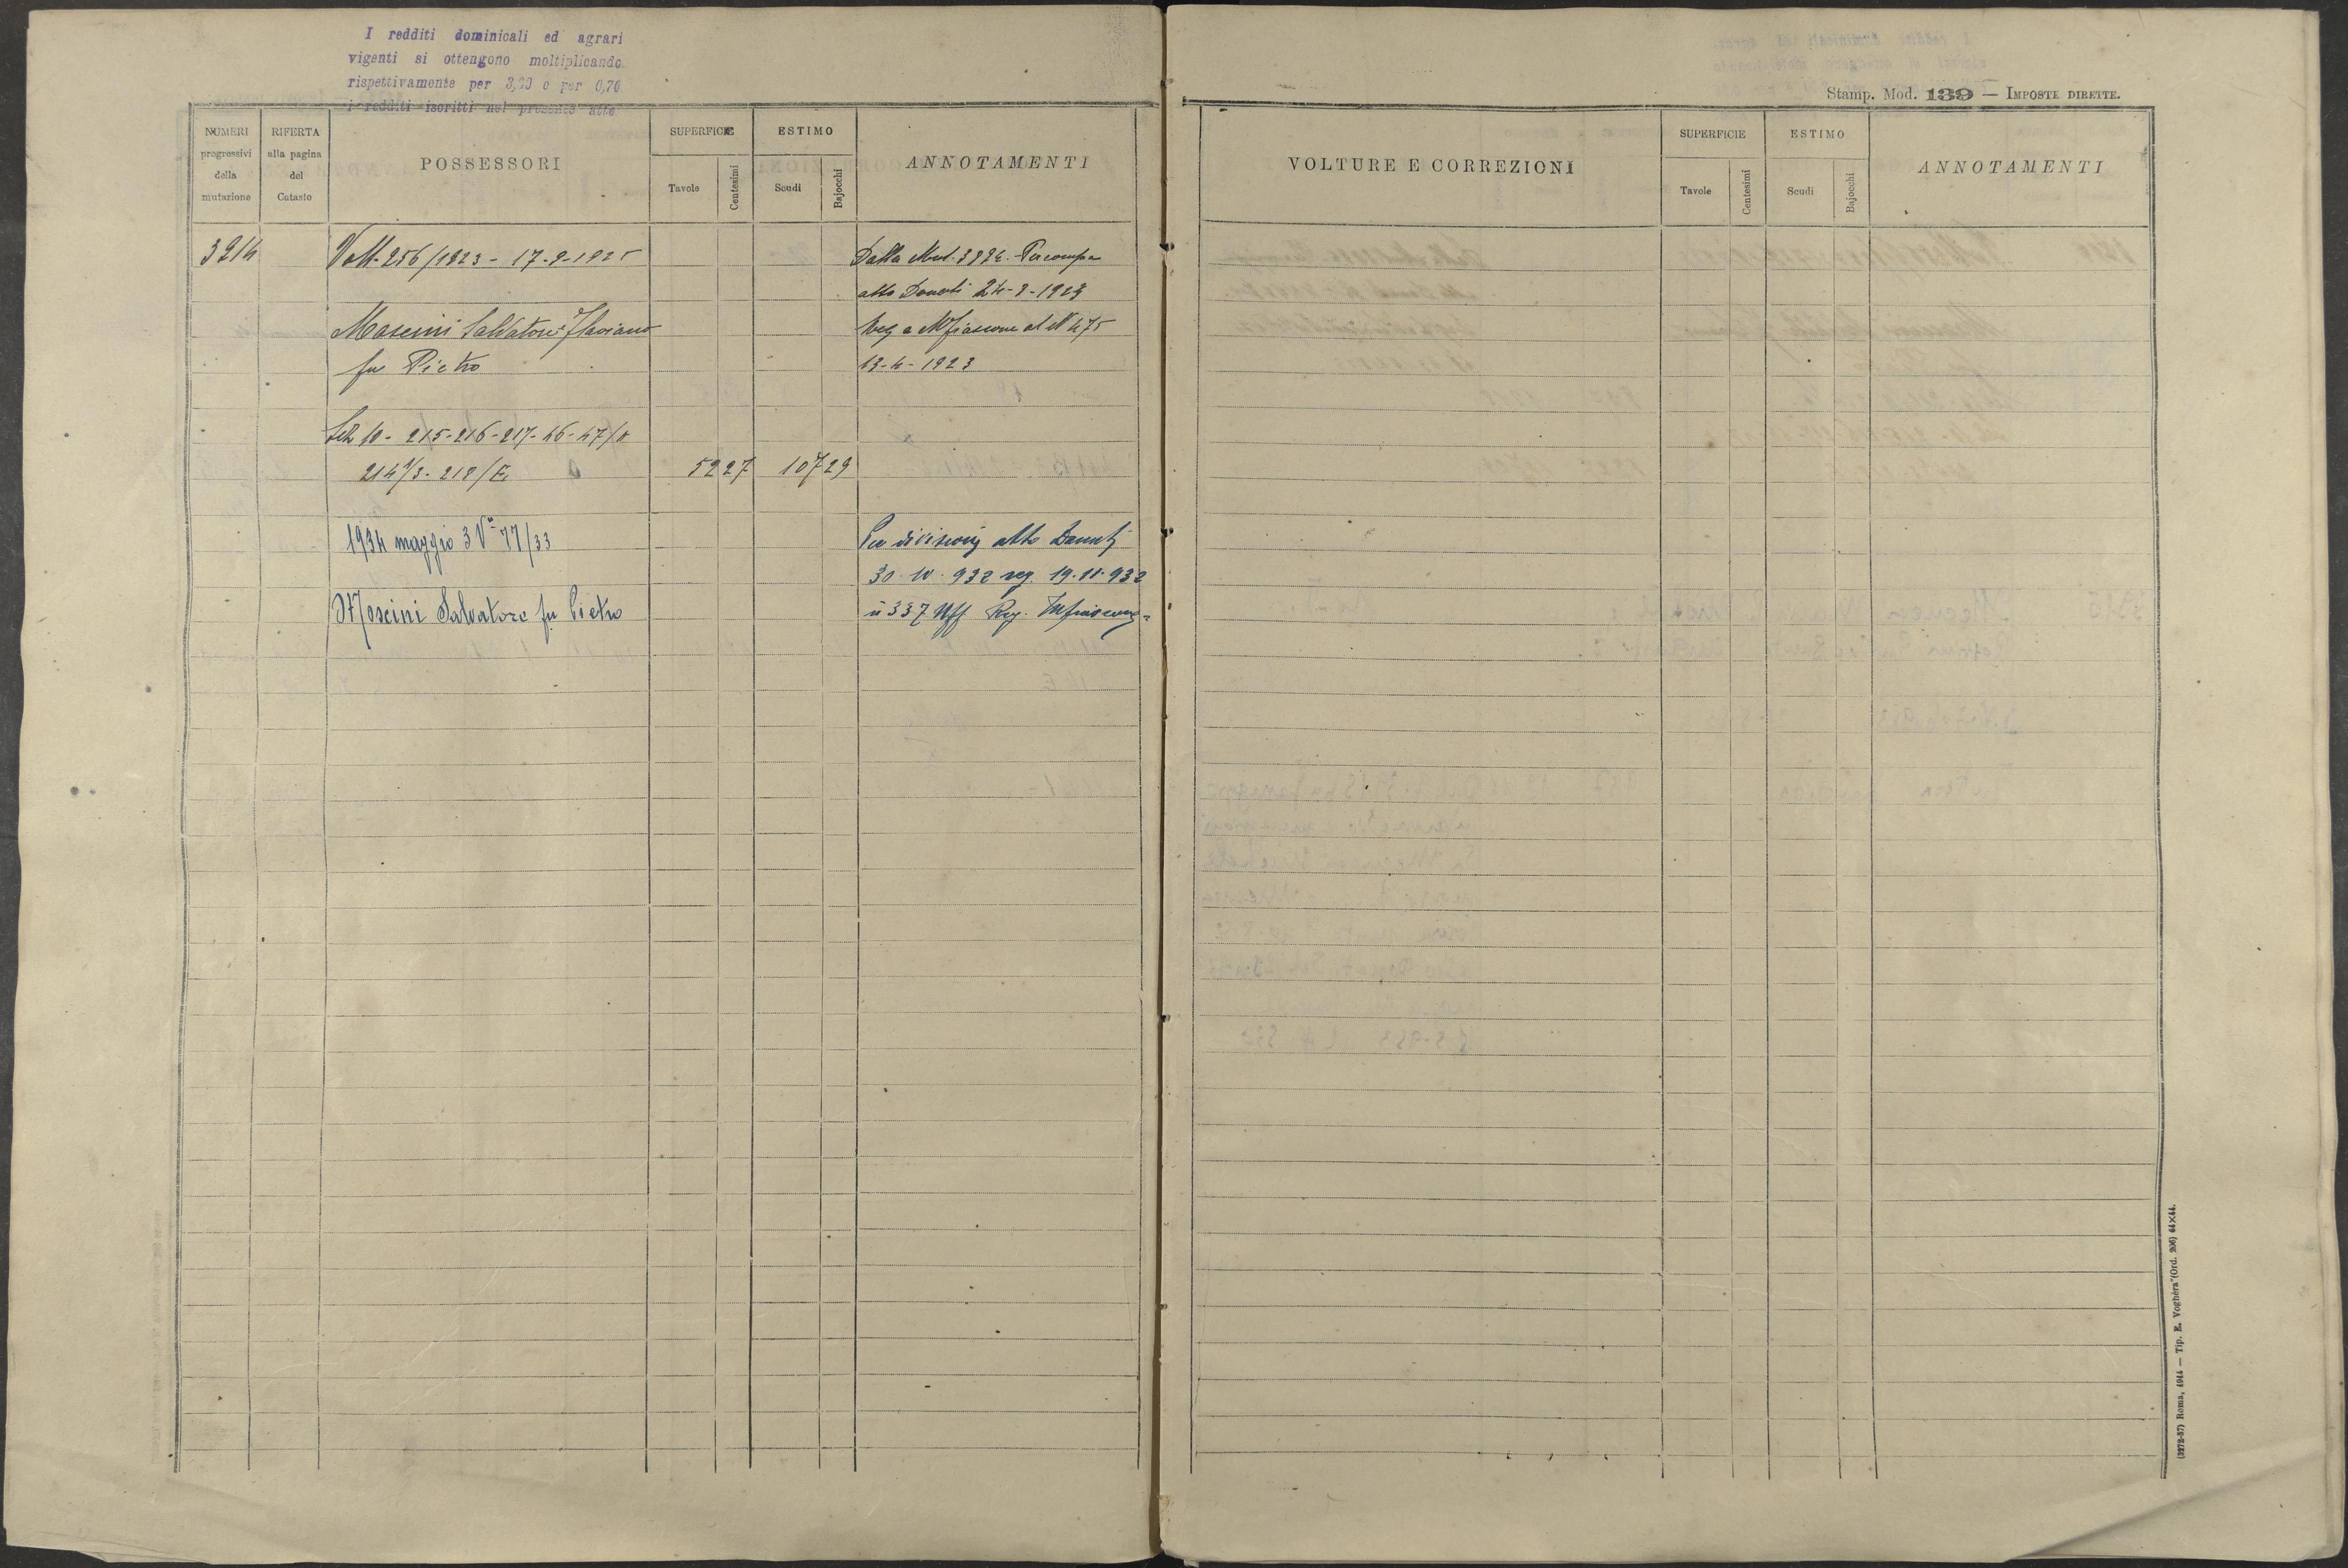 I redditi dominicali ed agrari
vigenti si ottengono moltiplicando
rispettivamente per 3,20 e per 0,70
i redditi iscritti nel presente atto
NUMERI progressivi della mutazione
RIFERTA alla pagina del Catasto
POSSESSORI
SUPERFICIE
Tavole
Centesimi
ESTIMO
Scudi
Bajocchi
ANNOTAMENTI
3914
Volt. 256/1923 - 17-9-1925
Dalla Mut. Per compa
atto Donati 24-3-1923
Moscini Salvatore Flaviano
Reg a Mfiascone al N 475
fu Pietro
13-4-1923
Sez 10 - 215-216-217-46-47/
214 1/3 - 218/E
52 27
107 29
1934 maggio 3 Va 77/33
Per divisione atto Donati
30.10.932 reg. 19.11.932
Moscini Salvatore fu Pietro
n 337 Uff Reg. Mfiascone=
Stamp. Mod. 139 — IMPOSTE DIRETTE.
VOLTURE E CORREZIONI
SUPERFICIE
Tavole
Centesimi
ESTIMO
Scudi
Bajocchi
ANNOTAMENTI
(3272-57) Roma, 1914 — Tip. E. Voghera (Ord. 206) 64×44.